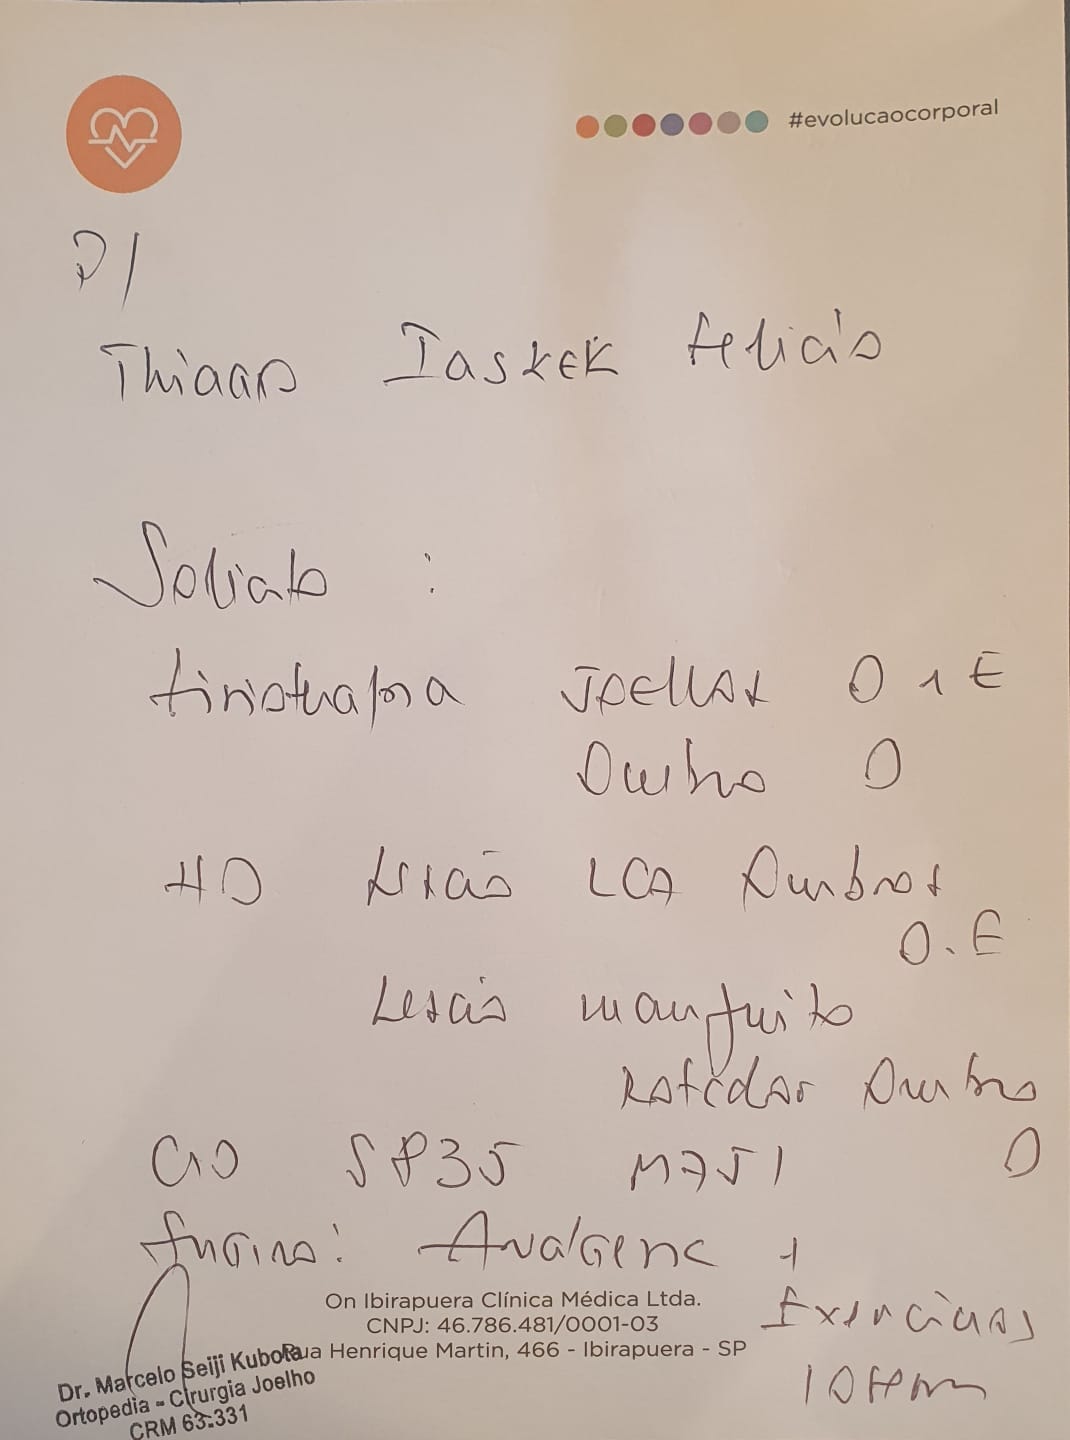 #evolucaocorporal
P/
Thiago Felicio
Solicito :
Fisioterapia Joelhos D e E
Ombro D
HD Lesão LCA Ombros
D.E
Lesão manguito
Rotador Ombro
D
CID S835 M751
Analgene +
On Ibirapuera Clínica Médica Ltda.
Exercicios
CNPJ: 46.786.481/0001-03
Rua Henrique Martin, 466 - Ibirapuera - SP
Dr. Marcelo Seiji Kubota
Ortopedia - Cirurgia Joelho
CRM 63.331